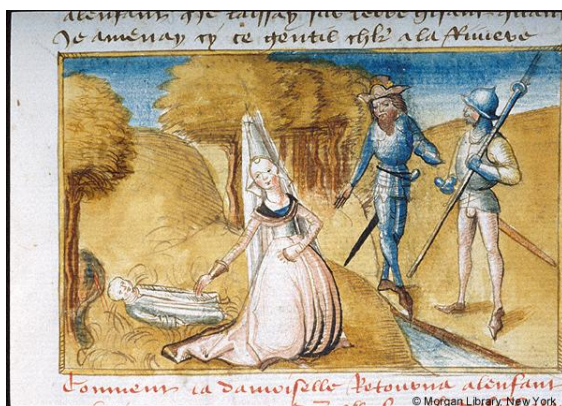 alenfant que laissay sur terre gisant quant
Je amenay cy ce gentil chlr a la Riviere
Comment la damoiselle Retourna alenfant
© Morgan Library, New York